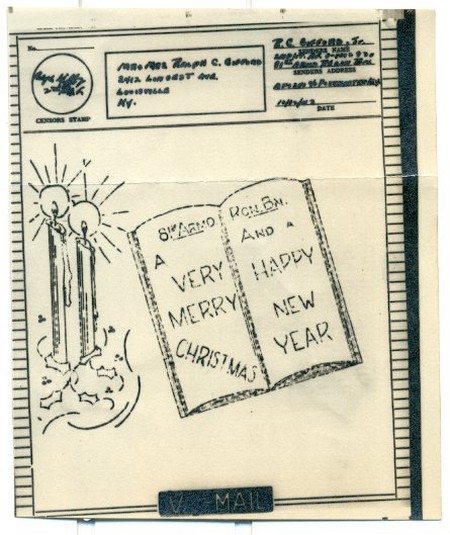 No.
CENSORS STAMP
MR & MRS RALPH C. GIFFORD
2412 LONGEST AVE.
LOUISVILLE
KY.
R. C. GIFFORD, Jr.
SENDERS NAME
SENDERS ADDRESS
DATE
8th ARMD RCN. BN.
A
VERY
MERRY
CHRISTMAS
AND A
HAPPY
NEW
YEAR
V - MAIL